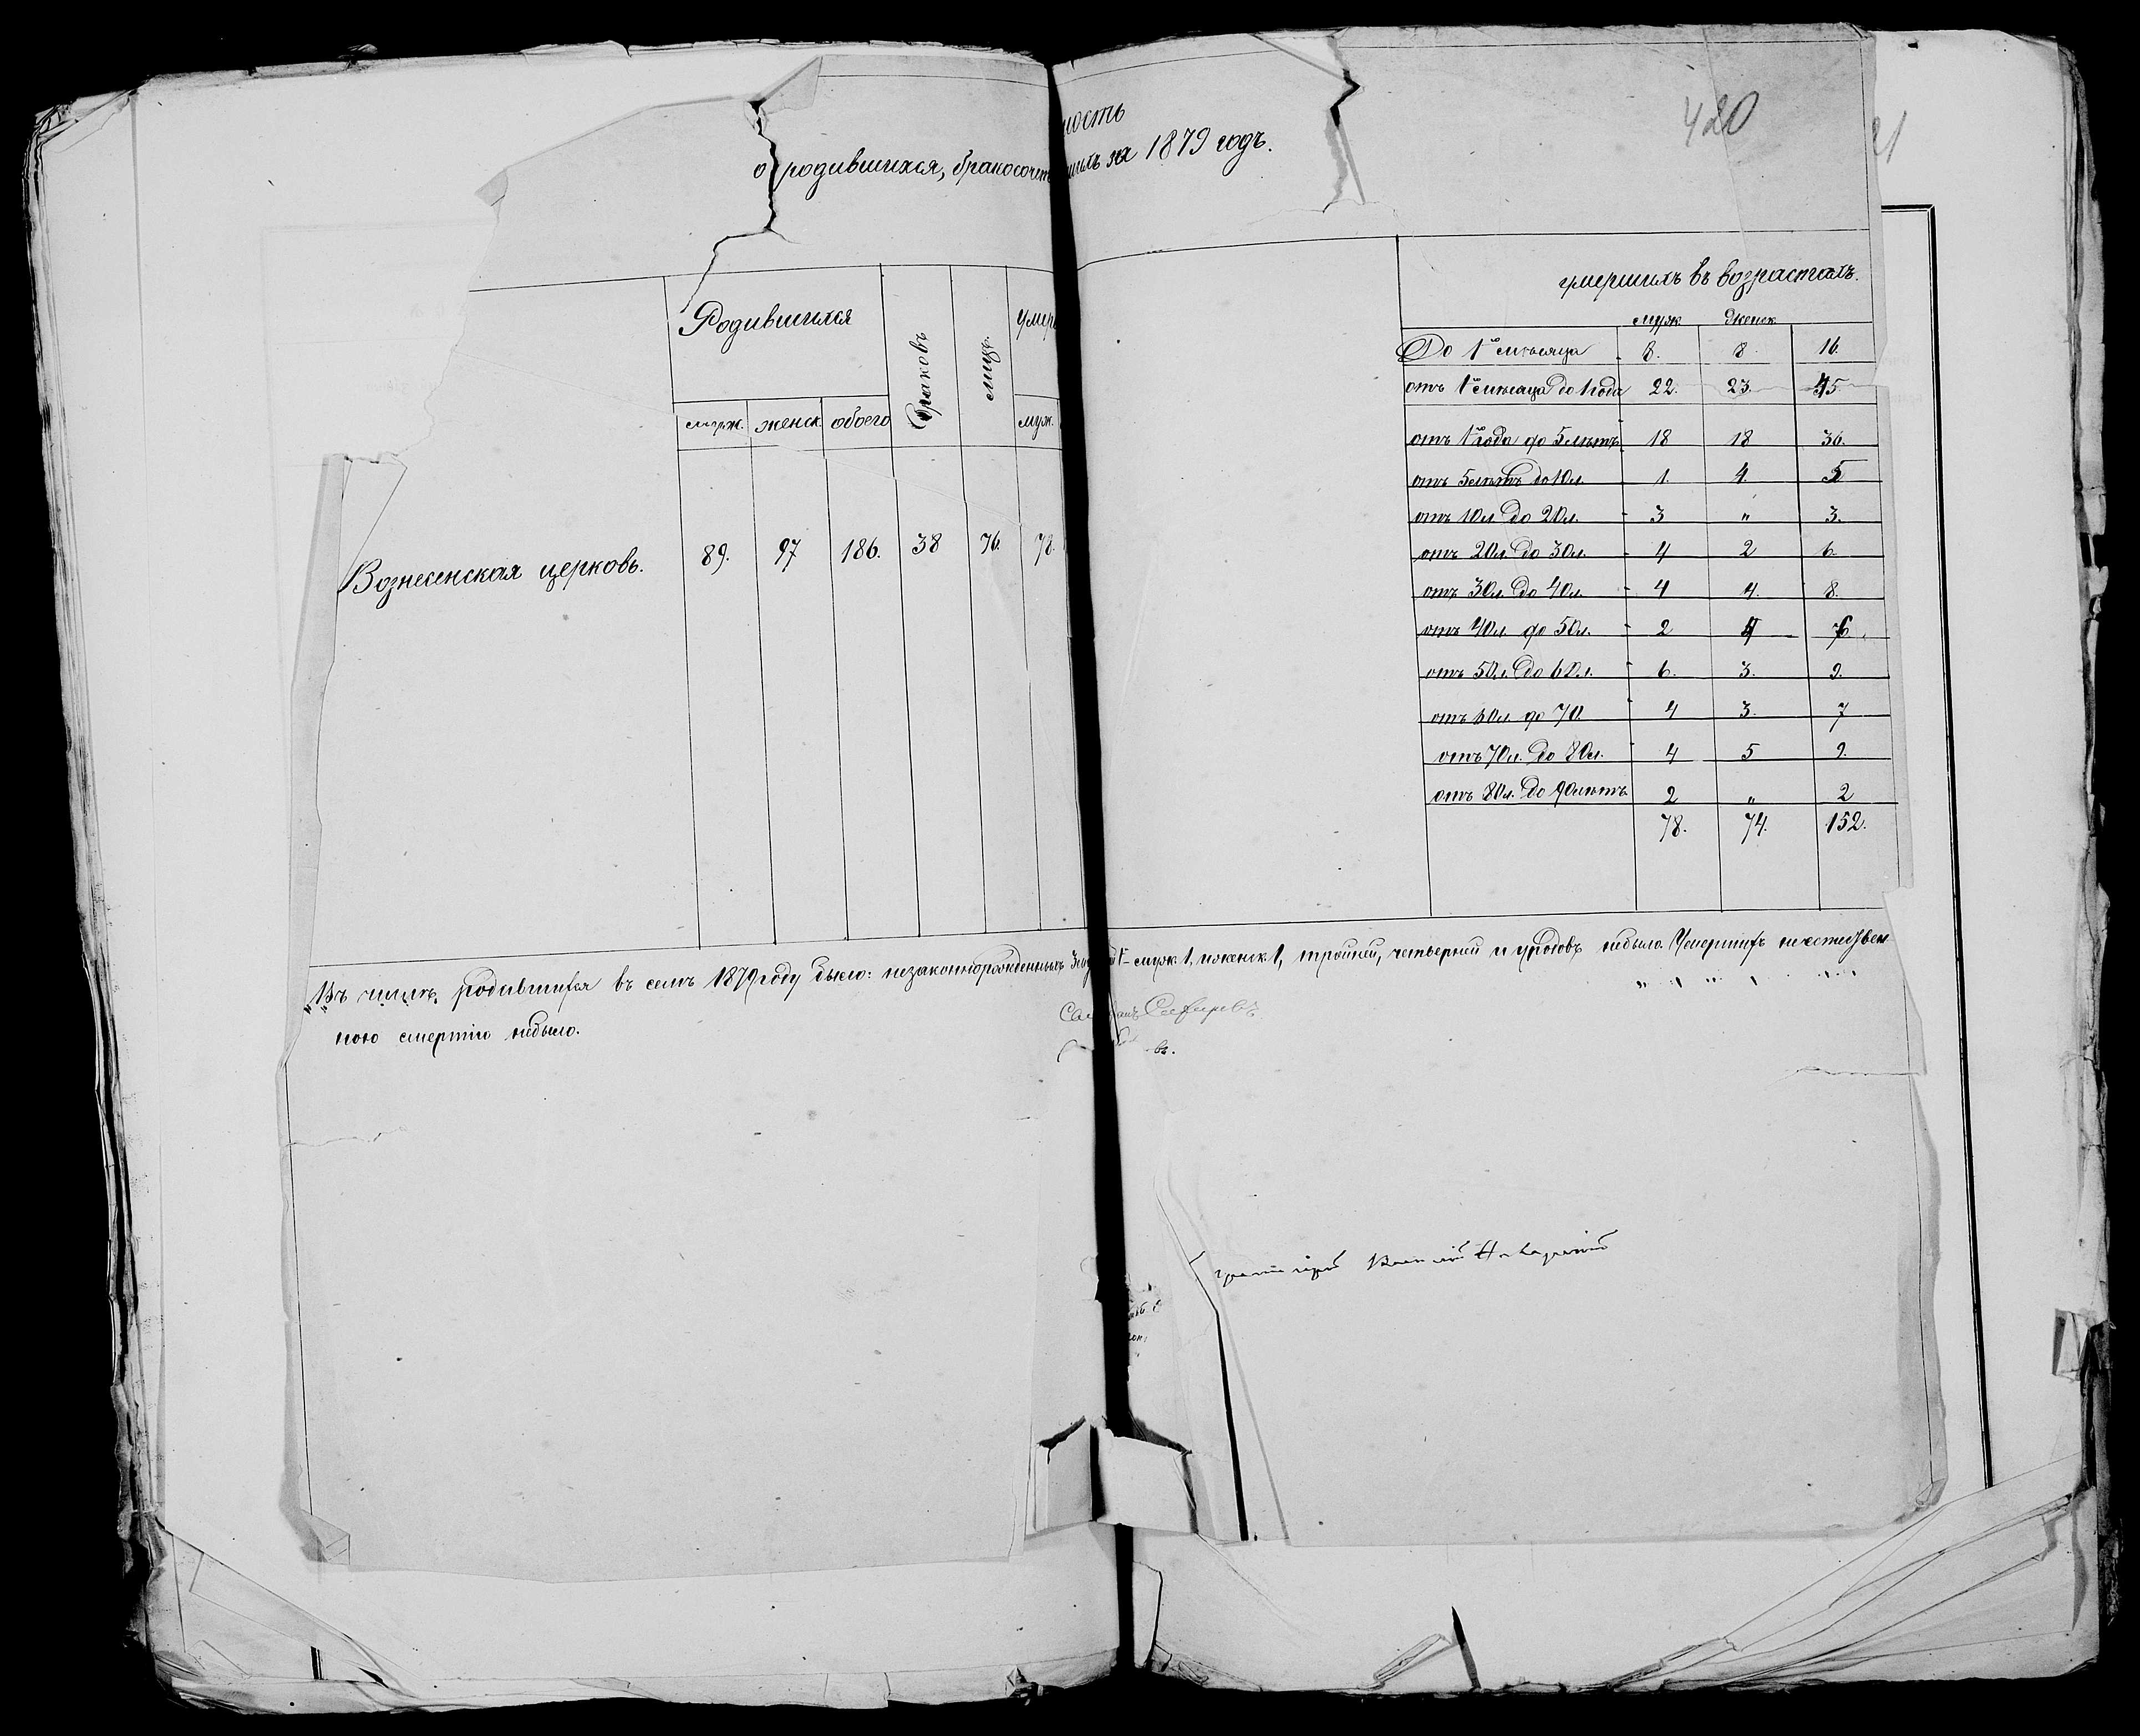 420
21
ность
о родившихся, бракосочет
ших за 1879 годъ.
Родившихся
Браковъ
лицъ.
умер
муж. женск обоего
муж.
Вознесенская церковь. 89. 97 186. 38 76. 78.
умершихъ въ возрастахъ.
муж женск
До 1го мѣсяца 8. 8 16.
отъ 1го мѣсяца до 1 года 22. 23. 45
отъ 1го года до 5 лѣтъ 18 18 36.
отъ 5 лѣтъ до 10 л. 1. 4. 5
отъ 10 л. до 20 л. 3 " 3.
отъ 20 л. до 30 л. 4 2 6
отъ 30 л. до 40 л. 4 4. 8.
отъ 40 л. до 50 л. 2 4 6
отъ 50 л. до 60 л. 6. 3. 9.
отъ 60 л. до 70. 4 3. 7
отъ 70 л. до 80 л. 4 5 9.
отъ 80 л. до 90 лѣтъ 2 " 2
78. 74. 152.
Въ числѣ родившихся въ семъ 1879 году было: незаконнорожденныхъ муж 1, и женск 1, тройней, четверней и уродовъ небыло. Умершихъ неестествен
ною смертію небыло.
въ.